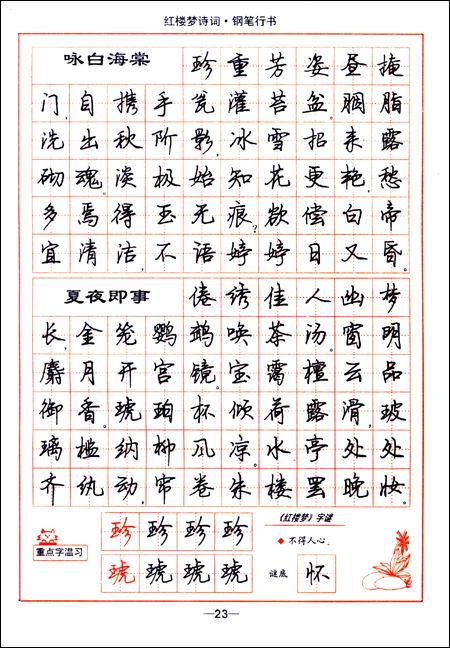 红楼梦诗词·钢笔行书
咏白海棠 珍重芳姿昼掩
门,自携手瓮灌苔盆。胭脂
洗出秋阶影,冰雪招来露
砌魂。淡极始知花更艳,愁
多焉得玉无痕?欲偿白帝
宜清洁,不语婷婷日又昏。
夏夜即事 倦绣佳人幽梦
长,金笼鹦鹉唤茶汤。窗明
麝月开宫镜。室霭檀云品
御香。琥珀杯倾荷露滑,玻
璃槛纳柳风凉。水亭处处
齐纨动,帘卷朱楼罢晚妆。
重点字温习
珍珍珍珍
琥琥琥琥
《红楼梦》字谜
◆ 不得人心。
谜底 怀
—23—